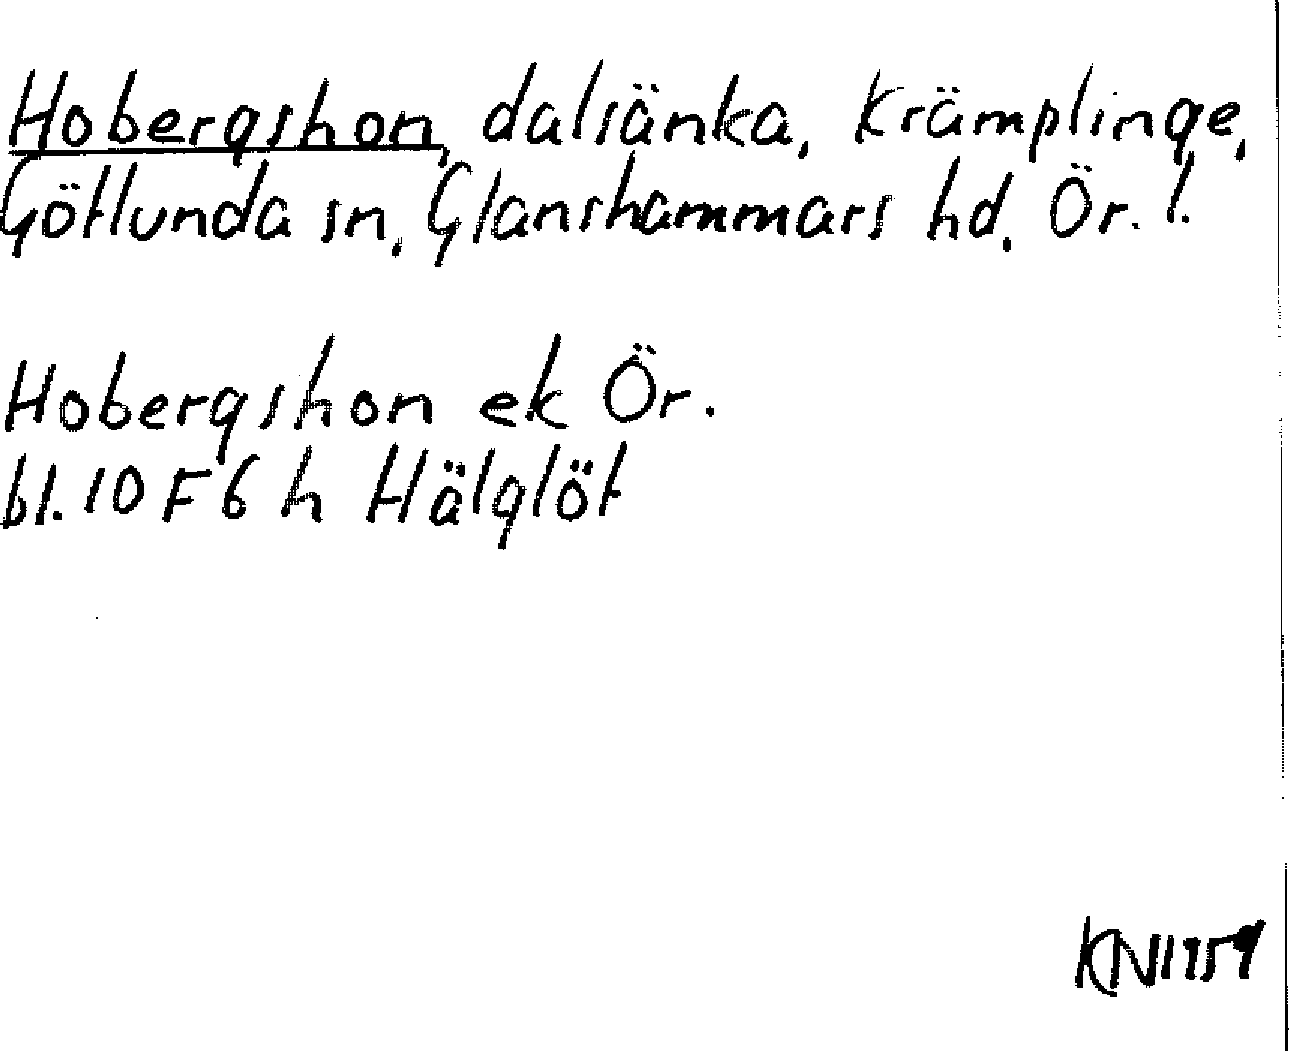 Hobergshon, dalsänka, Krämplinge,
Götlunda sn, Glanshammars hd, Ör. l.
Hobergshon ek Ör.
bl. 10 F 6 h Hälglöt